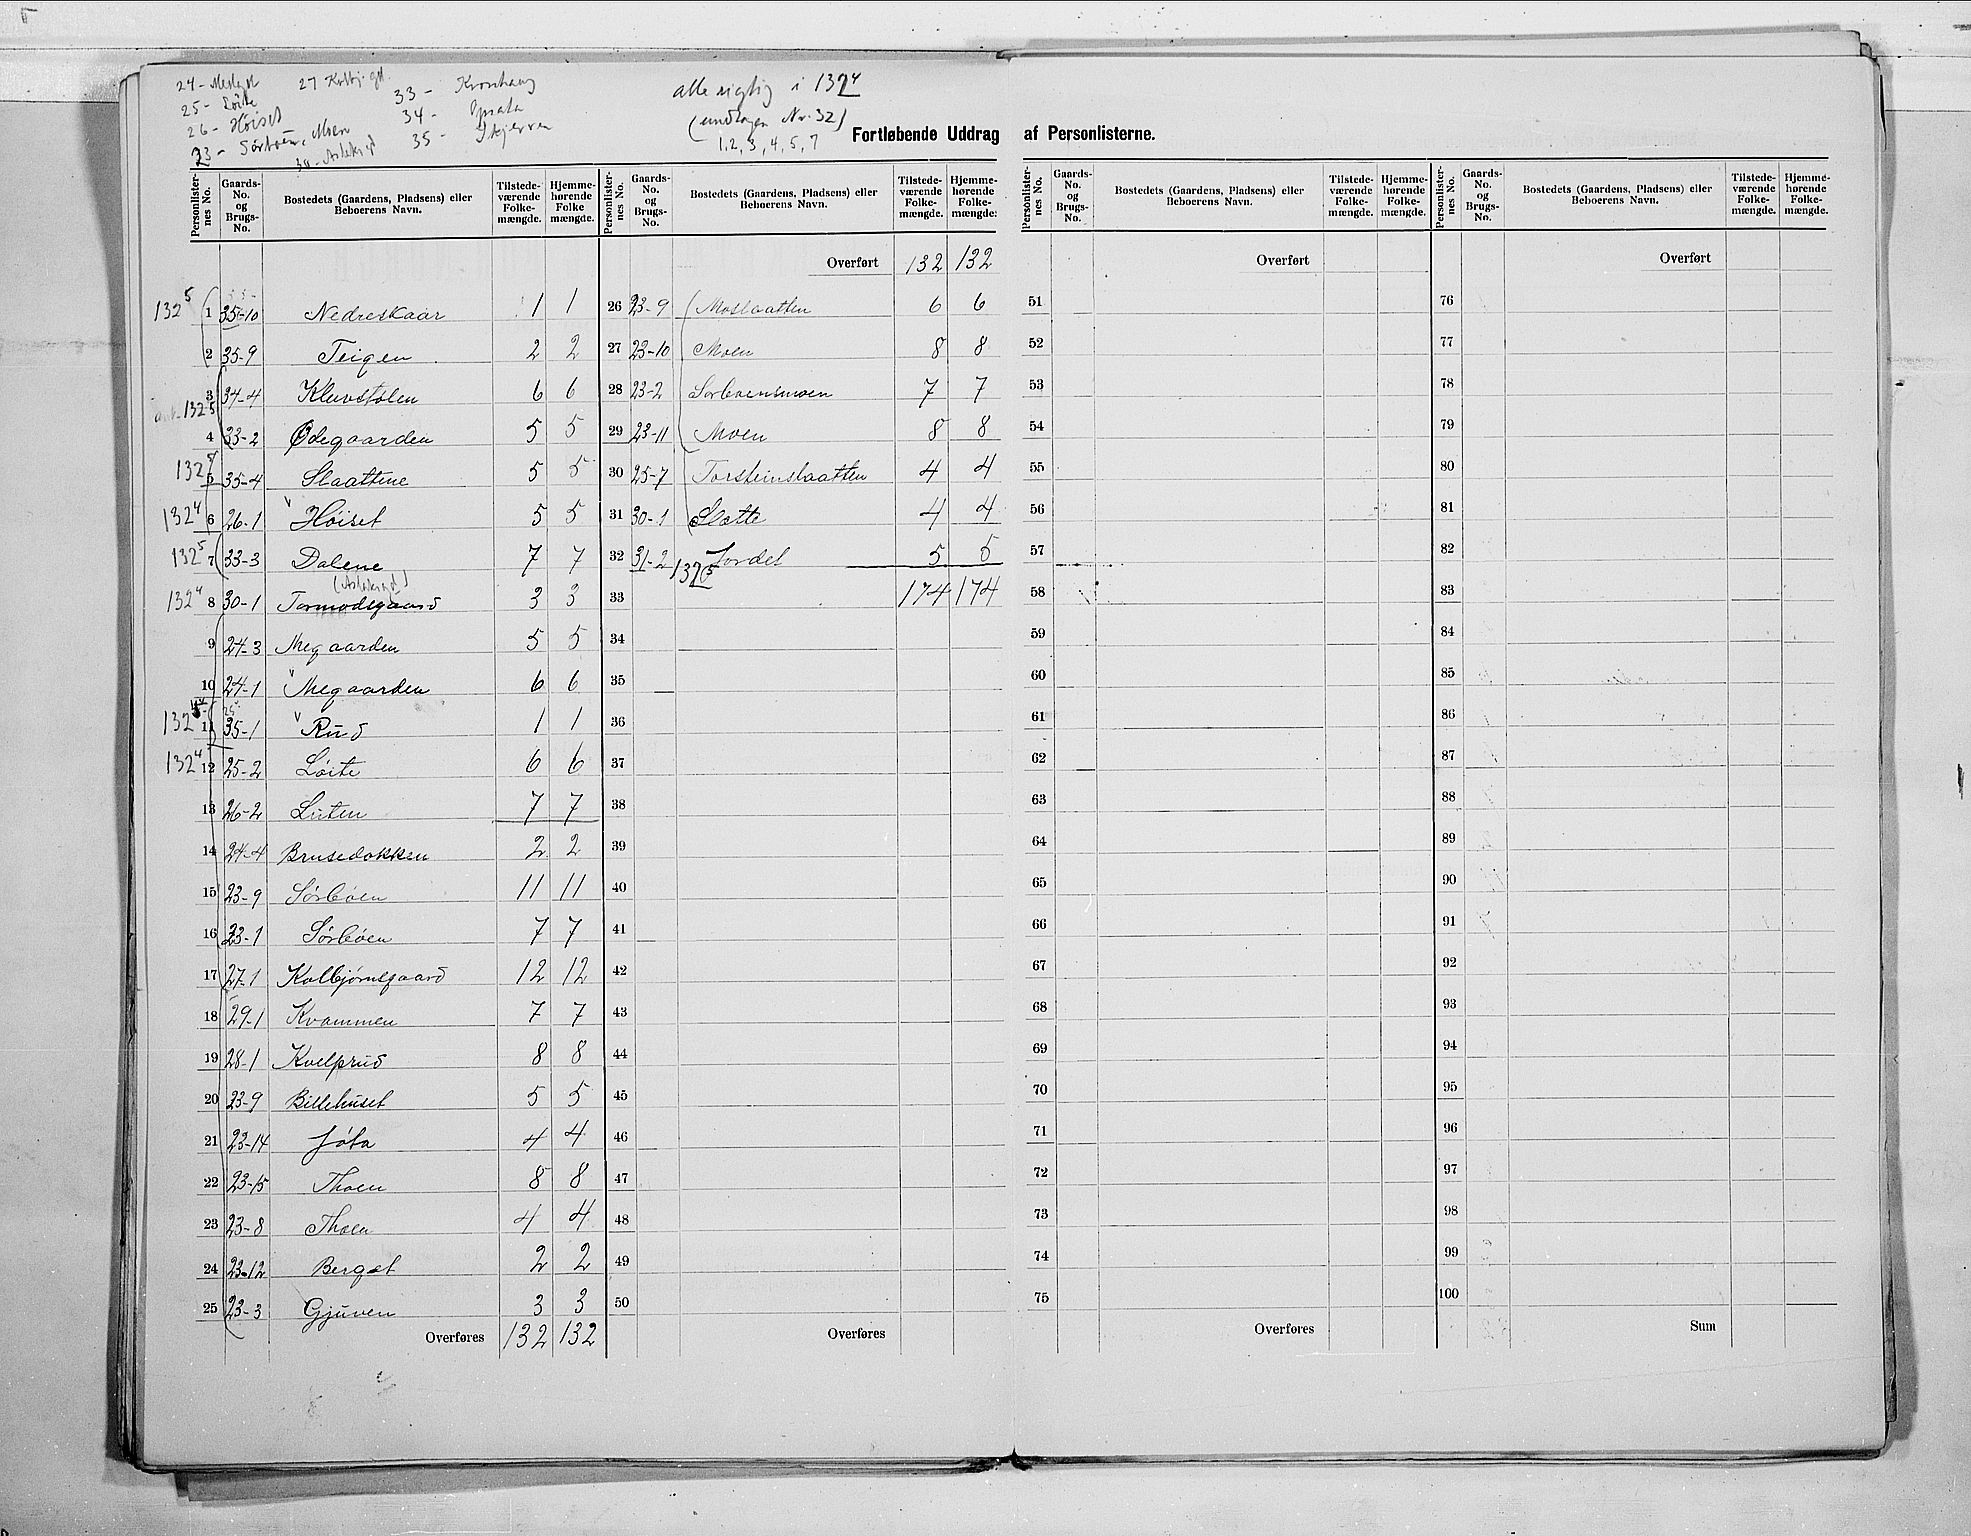 24 - 27 Kolbj.gd. 33 - Kronhaug alle rigtig i 132⁴
25 - Løite 34 - (undtagen Nr. 32)
26 - Høiset 35 - Skjerven 1, 2, 3, 4, 5, 7
23 - Sørbøen, Moen
30 - Aslaksgd
Fortløbende Uddrag af Personlisterne.
Personlisternes No. Gaards-No. og Brugs-No. Bostedets (Gaardens, Pladsens) eller Beboerens Navn. Tilstedeværende Folkemængde. Hjemmehørende Folkemængde.
Personlisternes No. Gaards-No. og Brugs-No. Bostedets (Gaardens, Pladsens) eller Beboerens Navn. Tilstedeværende Folkemængde. Hjemmehørende Folkemængde.
Personlisternes No. Gaards-No. og Brugs-No. Bostedets (Gaardens, Pladsens) eller Beboerens Navn. Tilstedeværende Folkemængde. Hjemmehørende Folkemængde.
Personlisternes No. Gaards-No. og Brugs-No. Bostedets (Gaardens, Pladsens) eller Beboerens Navn. Tilstedeværende Folkemængde. Hjemmehørende Folkemængde.
132⁵ 1 35-10 Nedreskaar 1 1
2 35-9 Teigen 2 2
3 34-4 Kluvstølen 6 6
132⁵
4 33-2 Ødegaarden 5 5
132⁵ 5 35-4 Slaattene 5 5
132⁴ 6 26-1 Høiset 5 5
132⁵ 7 33-3 Dalene 7 7
(Aslaksgd)
132⁴ 8 30-1 Tormodsgaard 3 3
9 24-3 Megaarden 5 5
10 24-1 Megaarden 6 6
132 11 35-1 Rud 1 1
132⁴ 12 25-2 Løite 6 6
13 26-2 Luten 7 7
14 24-4 Brusedokken 2 2
15 23-9 Sørbøen 11 11
16 23-1 Sørbøen 7 7
17 27-1 Kolbjørnsgaard 12 12
18 29-1 Kvammen 7 7
19 28-1 Kvelprud 8 8
20 23-9 Billehuset 5 5
21 23-14 Jøta 4 4
22 23-15 Thoen 8 8
23 23-8 Thoen 4 4
24 23-12 Berget 2 2
25 23-3 Gjuven 3 3
Overføres 132 132
Overført 132 132
26 23-9 Moslaatten 6 6
27 23-10 Moen 8 8
28 23-2 Sørbøensmoen 7 7
29 23-11 Moen 8 8
30 25-7 Torsteinslaatten 4 4
31 30-1 Slotte 4 4
32 31-2 Jordet 5 5
132⁵
33 174 174
34
35
36
37
38
39
40
41
42
43
44
45
46
47
48
49
50
Overføres
Overført
51
52
53
54
55
56
57
58
59
60
61
62
63
64
65
66
67
68
69
70
71
72
73
74
75
Overføres
Overført
76
77
78
79
80
81
82
83
84
85
86
87
88
89
90
91
92
93
94
95
96
97
98
99
100
Sum